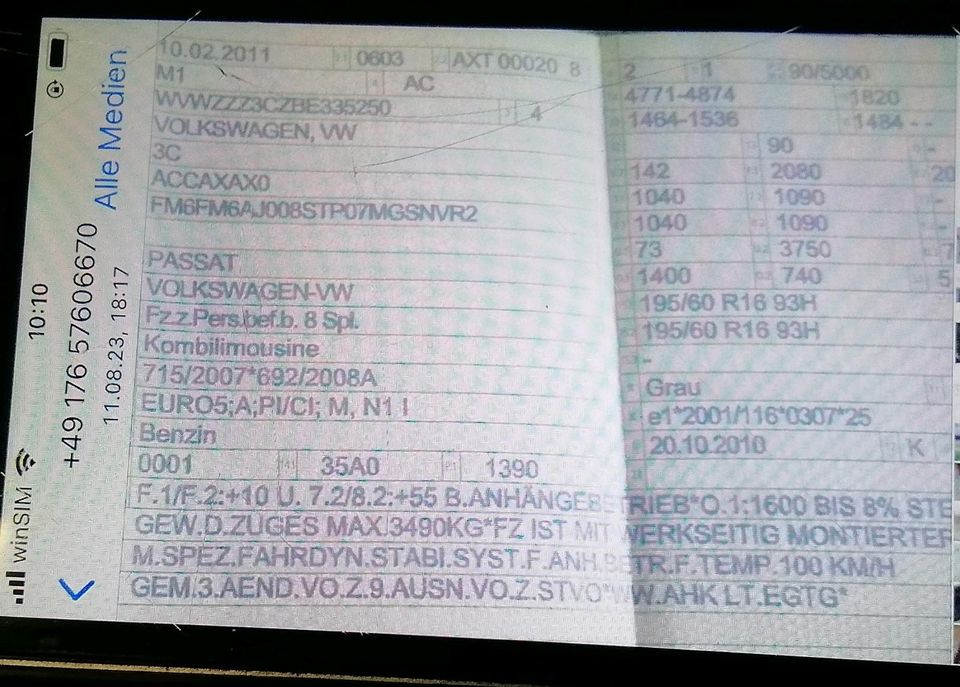 10:10
winSIM
+49 176 57606670
11.08.23, 18:17
Alle Medien
10.02.2011 0603 AXT 00020 8
M1 AC
WVWZZZ3CZBE335250 4
VOLKSWAGEN, VW
3C
ACCAXAX0
FM6FM6AJ008STP07MGSNVR2
PASSAT
VOLKSWAGEN-VW
Fz.z.Pers.bef.b. 8 Spl.
Kombilimousine
715/2007*692/2008A
EURO5;A;PI/CI; M, N1 I
Benzin
0001 35A0 1390
2 1 90/5000
4771-4874 1820
1464-1536 1484 - -
90 -
142 2080 20
1040 1090 -
1040 1090 -
73 3750 7
1400 740 5
195/60 R16 93H
195/60 R16 93H
-
Grau
e1*2001/116*0307*25
20.10.2010 K
F.1/F.2:+10 U. 7.2/8.2:+55 B.ANHÄNGEBETRIEB*O.1:1600 BIS 8% STE
GEW.D.ZUGES MAX.3490KG*FZ IST MIT WERKSEITIG MONTIERTER
M.SPEZ.FAHRDYN.STABI.SYST.F.ANH.BETR.F.TEMP.100 KM/H
GEM.3.AEND.VO.Z.9.AUSN.VO.Z.STVO*WW.AHK LT.EGTG*